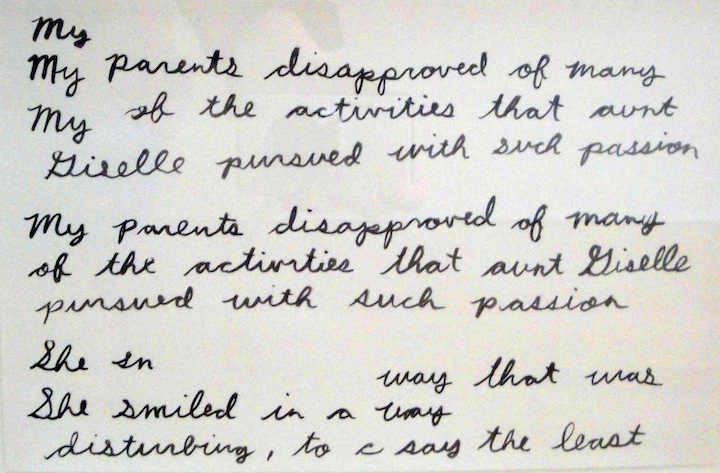 My
My parents disapproved of many
My of the activities that aunt
Giselle pursued with such passion
My parents disapproved of many
of the activities that aunt Giselle
pursued with such passion
She sn
way that was
She smiled in a way
disturbing, to c say the least